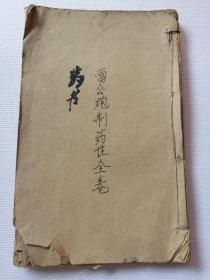 雷公炮制药性全卷
药书